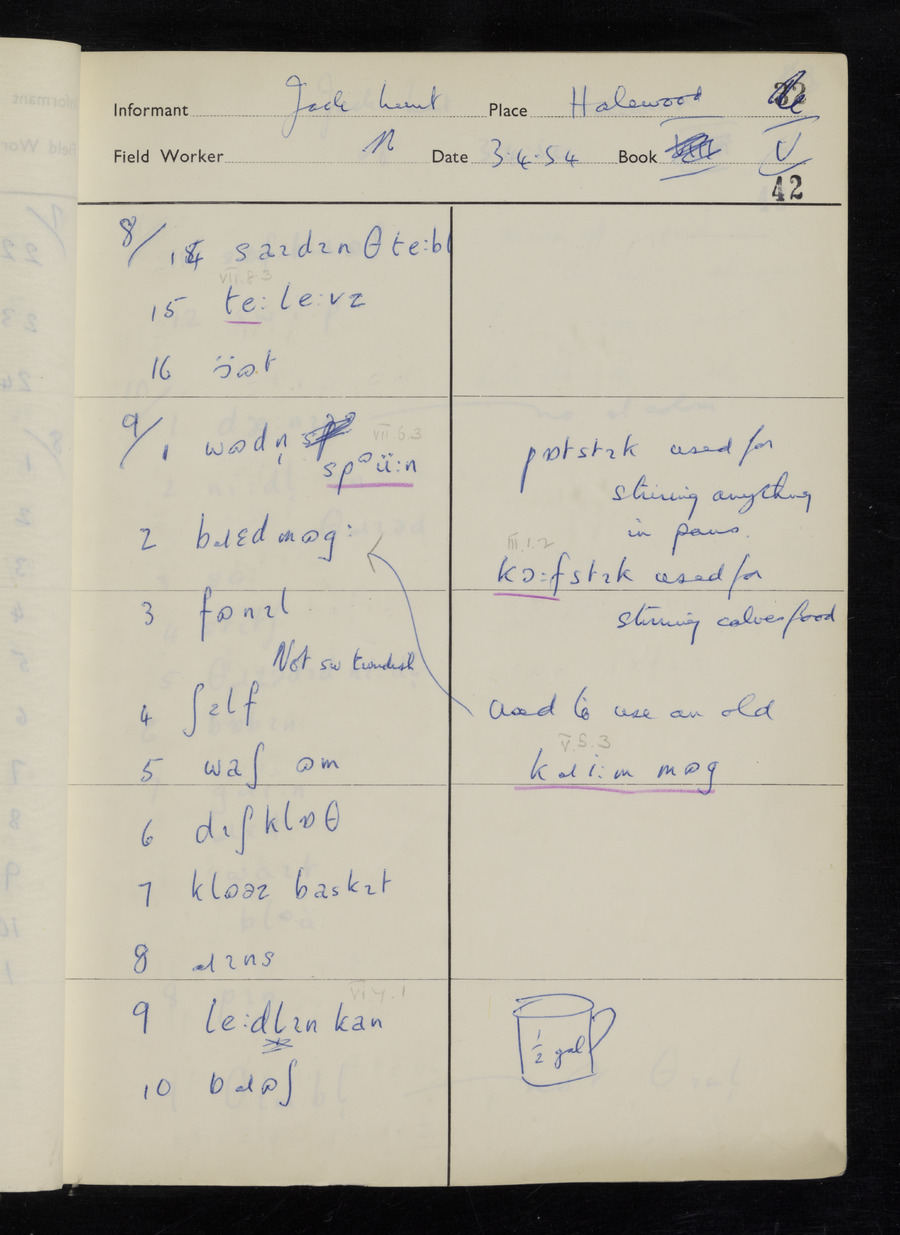 Informant Jack Place Halewood
Field Worker N Date 3.4.54 Book V
42
8/ 14 saɪdɪn θ te:bl
VII.8.3
15 te: le:vz
16
9/ 1 wɷdn̩
VII.6.3
spᶷü:n
2 bɹɛd mɷg:
3 fɷnɪl
Not sw tundish
4 ʃɛlf
5 waʃ ɷm
6 dɪʃklɒθ
7 klɷəz baskɪt
8 ɹɪns
VI.4.1
9 le:dlɪn kan
10 bɹɷʃ
pɒtstɪk used for
stirring anything
in pans.
III.1.2
kɔ:fstɪk used for
stirring calves food
used to use an old
V.5.3
kɹi:m mɷg
½ gal